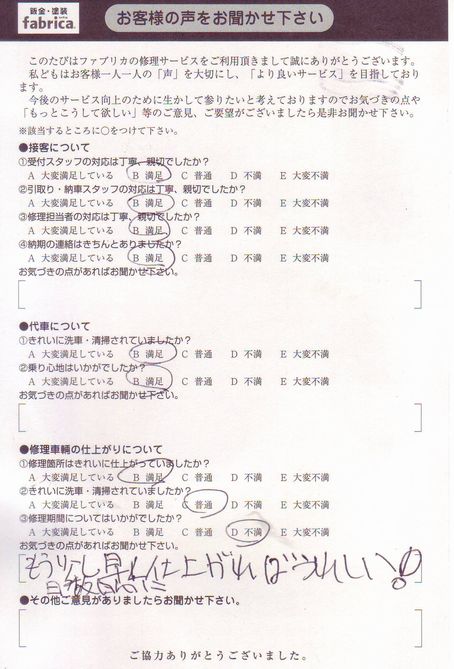 鈑金・塗装
fabrica.
お客様の声をお聞かせ下さい
このたびはファブリカの修理サービスをご利用頂きまして誠にありがとうございます。
私どもはお客様一人一人の「声」を大切にし、「より良いサービス」を目指しており
ます。
今後のサービス向上のために生かして参りたいと考えておりますのでお気づきの点や
「もっとこうして欲しい」等のご意見、ご要望がございましたら是非お聞かせ下さい。
※該当するところに○をつけて下さい。
●接客について
①受付スタッフの対応は丁寧、親切でしたか?
A 大変満足している B 満足 C 普通 D 不満 E 大変不満
②引取り・納車スタッフの対応は丁寧、親切でしたか?
A 大変満足している B 満足 C 普通 D 不満 E 大変不満
③修理担当者の対応は丁寧、親切でしたか?
A 大変満足している B 満足 C 普通 D 不満 E 大変不満
④納期の連絡はきちんとありましたか?
A 大変満足している B 満足 C 普通 D 不満 E 大変不満
お気づきの点があればお聞かせ下さい。
●代車について
①きれいに洗車・清掃されていましたか?
A 大変満足している B 満足 C 普通 D 不満 E 大変不満
②乗り心地はいかがでしたか?
A 大変満足している B 満足 C 普通 D 不満 E 大変不満
お気づきの点があればお聞かせ下さい。
●修理車輌の仕上がりについて
①修理箇所はきれいに仕上がっていましたか?
A 大変満足している B 満足 C 普通 D 不満 E 大変不満
②きれいに洗車・清掃されていましたか?
A 大変満足している B 満足 C 普通 D 不満 E 大変不満
③修理期間についてはいかがでしたか?
A 大変満足している B 満足 C 普通 D 不満 E 大変不満
お気づきの点があればお聞かせ下さい。
もう少し早く仕上がればうれしい!
●その他ご意見がありましたらお聞かせ下さい。
ご協力ありがとうございました。